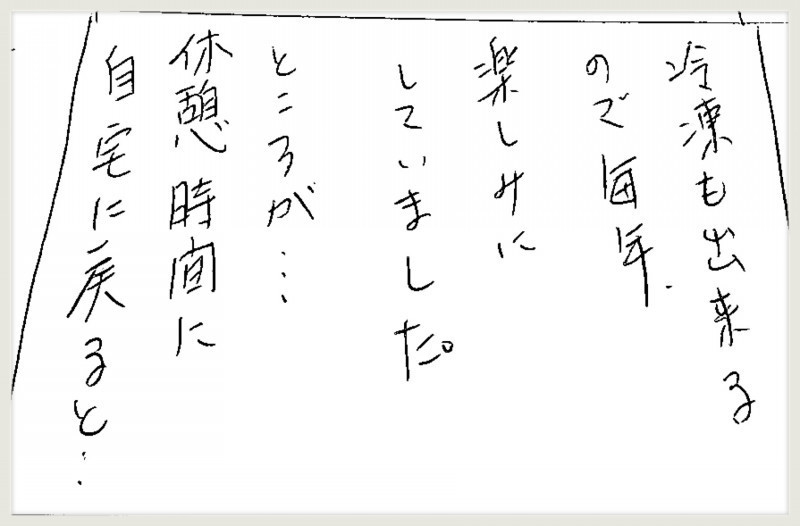 冷凍も出来る
ので毎年
楽しみに
していました。
ところが…
休憩時間に
自宅に戻ると…